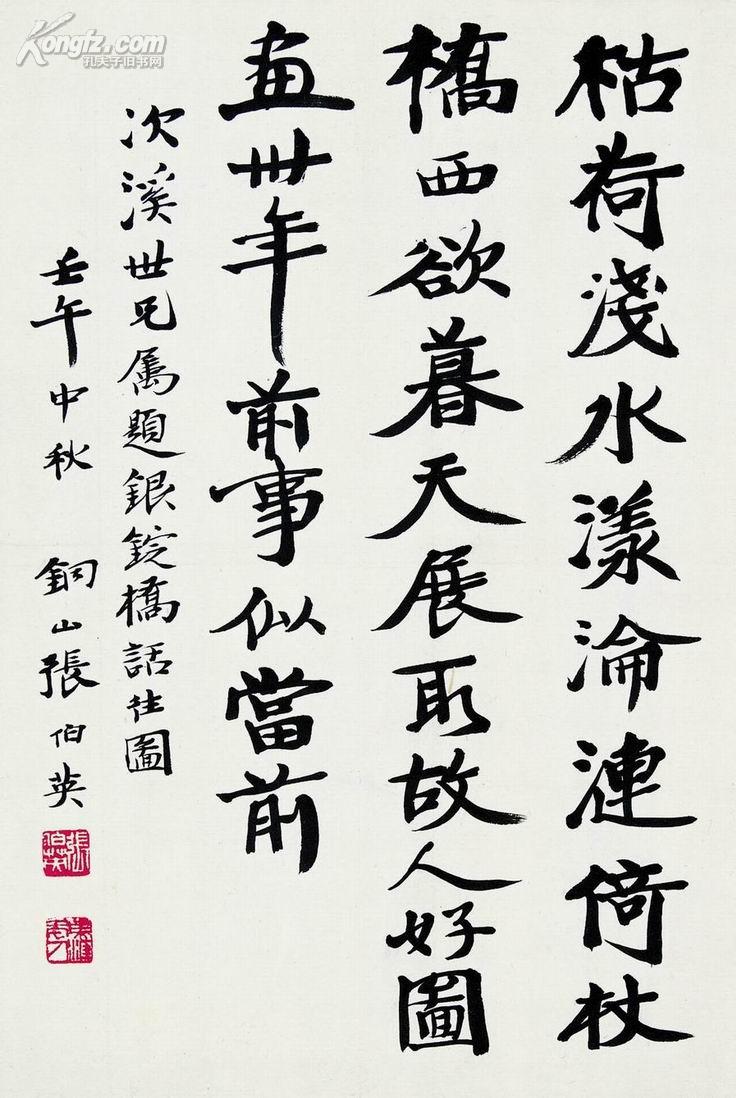 枯荷淺水漾淪漣倚杖
橋西欲暮天展取故人好圖
畫卅年前事似當前
次溪世兄属題銀錠橋話往圖
壬午中秋 銅山張伯英
張伯英
Kongfz.com
孔夫子旧书网